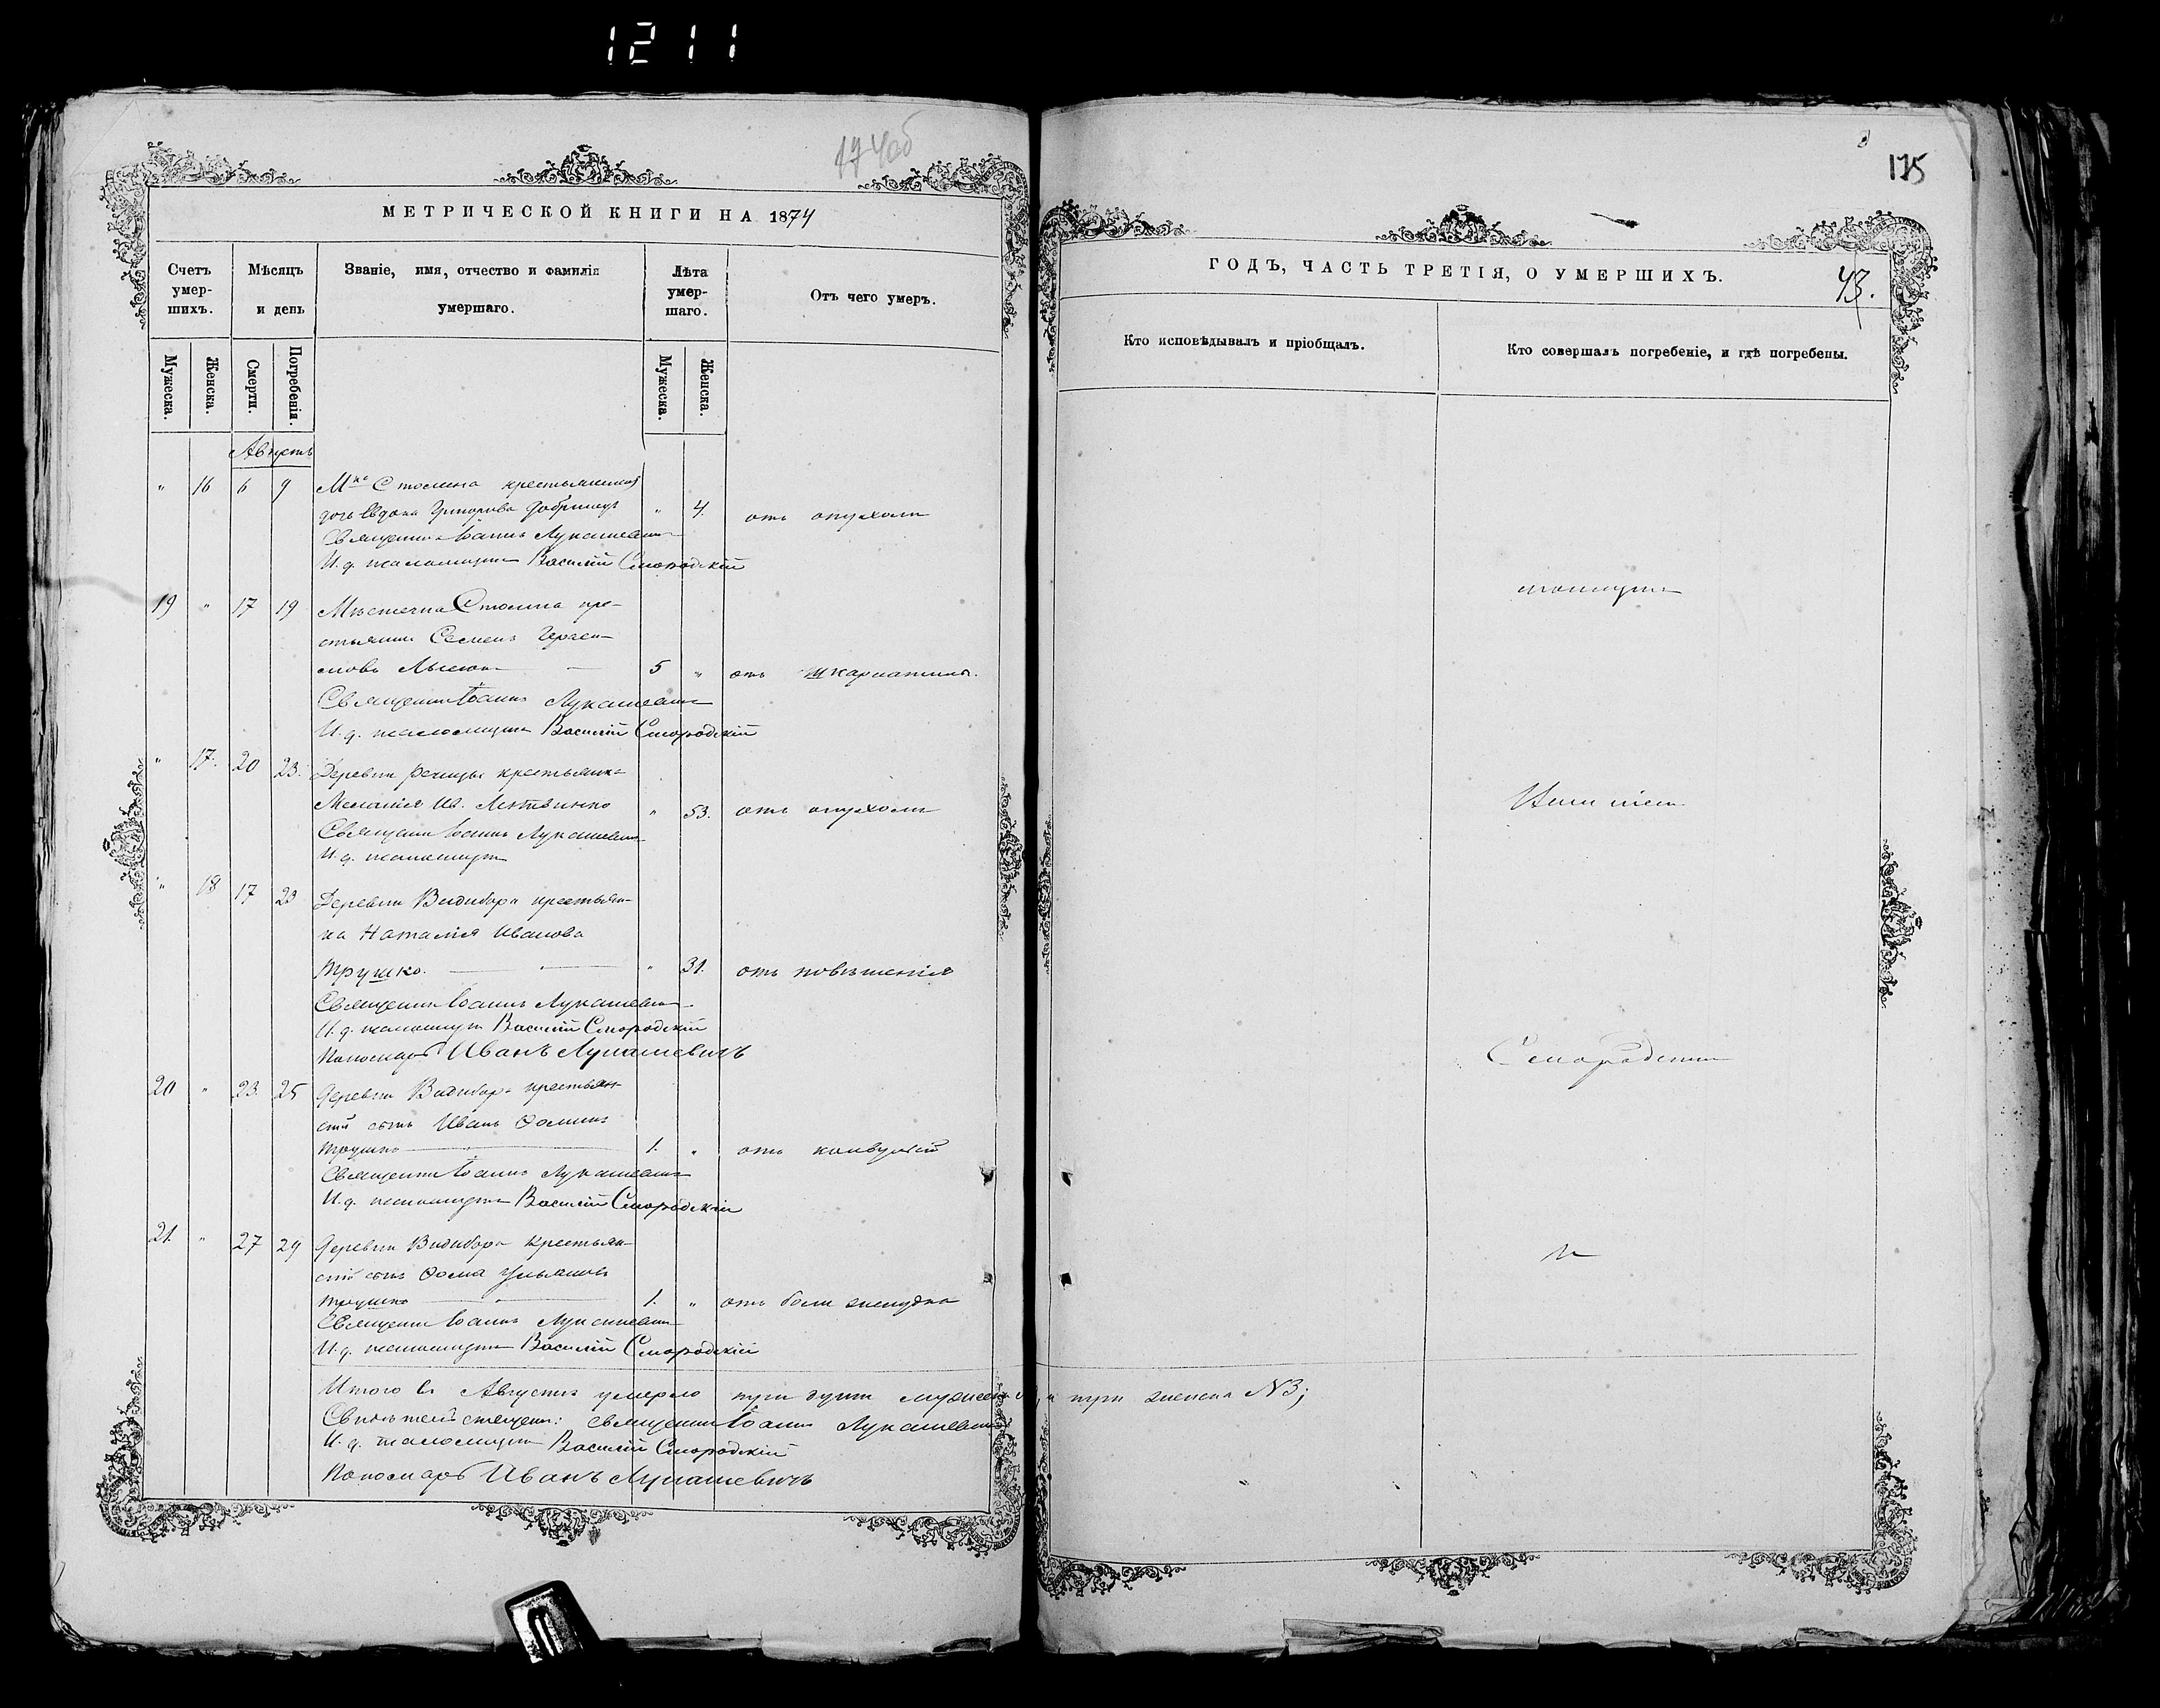 1211
174об
МЕТРИЧЕСКОЙ КНИГИ НА 1874
Счетъ умер-шихъ.
Мѣсяцъ и день
Званіе, имя, отчество и фамилія умершаго.
Лѣта умер-шаго.
Отъ чего умеръ.
Мужеска.
Женска.
Смерти.
Погребенія.
Мужеска.
Женска.
Августъ
" 16 6 9 Мко Столина крестьянская
дочь Евдокія " 4. отъ опухоли
Священникъ Іоаннъ Лукашевичъ
И. д. псаломщика Василій Смородскій
19 " 17 19 Мѣстечка Столина кре-
стьянинъ Семенъ Гераси-
мовъ 5 " отъ шкарлатины.
Священникъ Іоаннъ Лукашевичъ
И. д. псаломщика Василій Смородскій
" 17. 20 23. Деревни Речицы крестьянка
Меланія Ив. Литвинко " 53. отъ опухоли
Священникъ Іоаннъ Лукашевичъ
И. д. псаломщика
" 18 17 23 Деревни Видибора крестьян-
ка Наталія Иванова
Трушко. " 31. отъ повѣшенія
Священникъ Іоаннъ Лукашевичъ
И. д. псаломщика Василій Смородскій
Пономарь Иванъ Лукашевичъ
20 " 23. 25 Деревни Видибора крестьян-
скій сынъ Иванъ Ѳоминъ
Трушко 1. " отъ конвульсій
Священникъ Іоаннъ Лукашевичъ
И. д. псаломщика Василій Смородскій
21. " 27 29 Деревни Видибора крестьян-
скій сынъ Ѳома Ульяновъ
Трушко 1. " отъ боли желудка
Священникъ Іоаннъ Лукашевичъ
И. д. псаломщика Василій Смородскій
Итого въ Августѣ умерло три души мужеска и три женска №3;
священникъ Іоаннъ Лукашевичъ
И. д. псаломщика Василій Смородскій
Пономарь Иванъ Лукашевичъ
175
ГОДЪ, ЧАСТЬ ТРЕТІЯ, О УМЕРШИХЪ.
43.
Кто исповѣдывалъ и пріобщалъ.
Кто совершалъ погребеніе, и гдѣ погребены.